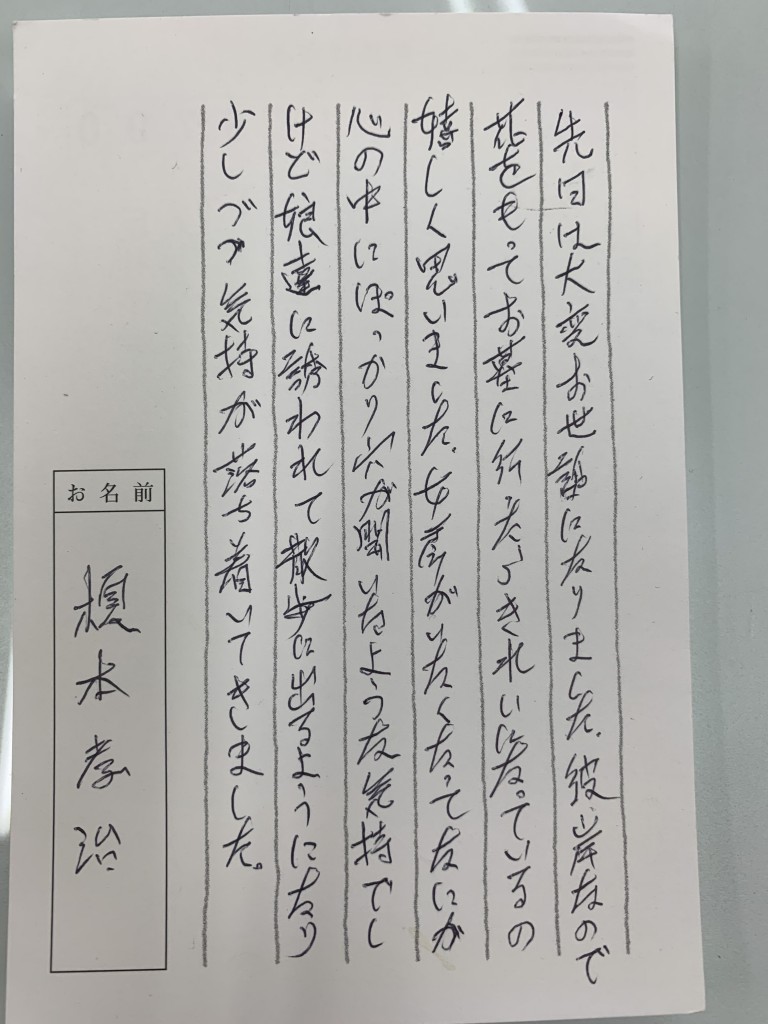 先日は大変お世話になりました。彼岸なので
花をもってお墓に行ったらきれいになっているの
嬉しく思いました。女房がいなくなってなにが
心の中にぽっかり穴が開いたような気持でし
けど娘達に誘われて散歩に出るようになり
少しづつ気持が落ち着いてきしました。
お名前
榎本孝治